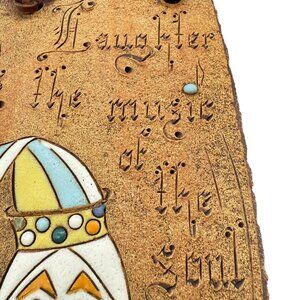 Laughter
is the
music
of
the
soul